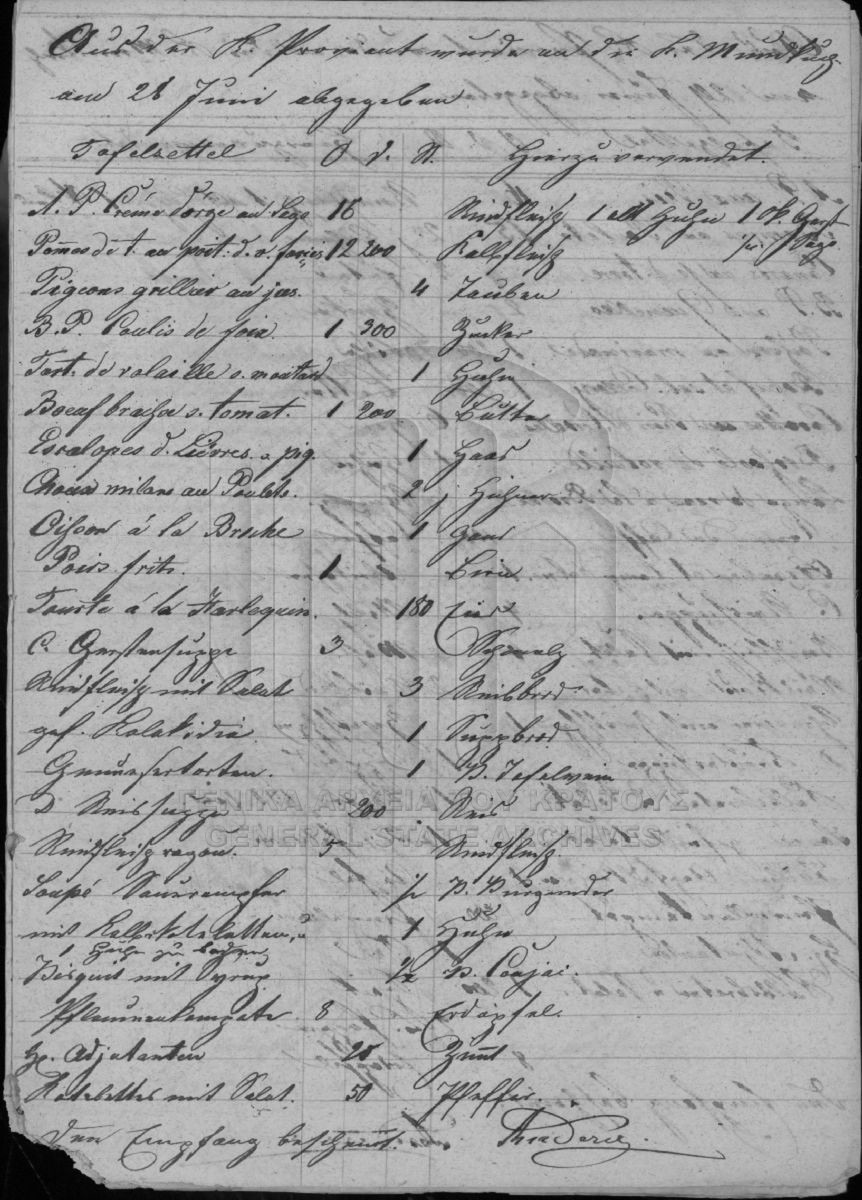 Aus der K. Proviant wurde an die K. Mundküch
am 28 Juni abgegeben
Tafelzettel O d. St. Hierzu verwendet.
A. P. Créme d'orge au Sego 16 Rindfleisch 1 Huhn 1 Ok. Gerst
Pom̄es de t. au poit. d. v. farcies 12 200 Kalbfleisch Sago
Pigeons grillier au jus. 4 Tauben
B. P. Coulis de foix. 1 300 Zucker
Tort. de volaille s. moutard 1 Huhn
Boeuf braisee s. tomat. 1 200 Butter
Escalopes d. Lièvres s. piq. 1 Haas
Choux milans au Poulets. 2 j. Hühner
Oisson á la Broche 1 Gans
Poirs frits. 1 Birn
Tourte á la Harlequin. 180 Eier
C. Gerstensuppe 3 Schmalz
Rindfleisch mit Salat 3 Reisbrod
gef. Kolokidia 1 Suppbrod
Genuesertorten. 1 B. Tafelwein
D Reissuppe 200 Reis
Rindfleischragou. 5 Rindfleisch
Soupé Sauerampfer ½ B. Burgunder
mit Kalbskoteletten, u 1 Huhn
1 Huhn zu
Bisquit mit Syrop ½ B.
Pflaumenkompote 8 Erdäpfel
H. Adjutanten 25 Zimt
Kotelettes mit Salat. 50 Pfeffer.
Den Empfang bescheint.
ΓΕΝΙΚΑ ΑΡΧΕΙΑ ΤΟΥ ΚΡΑΤΟΥΣ
GENERAL STATE ARCHIVES